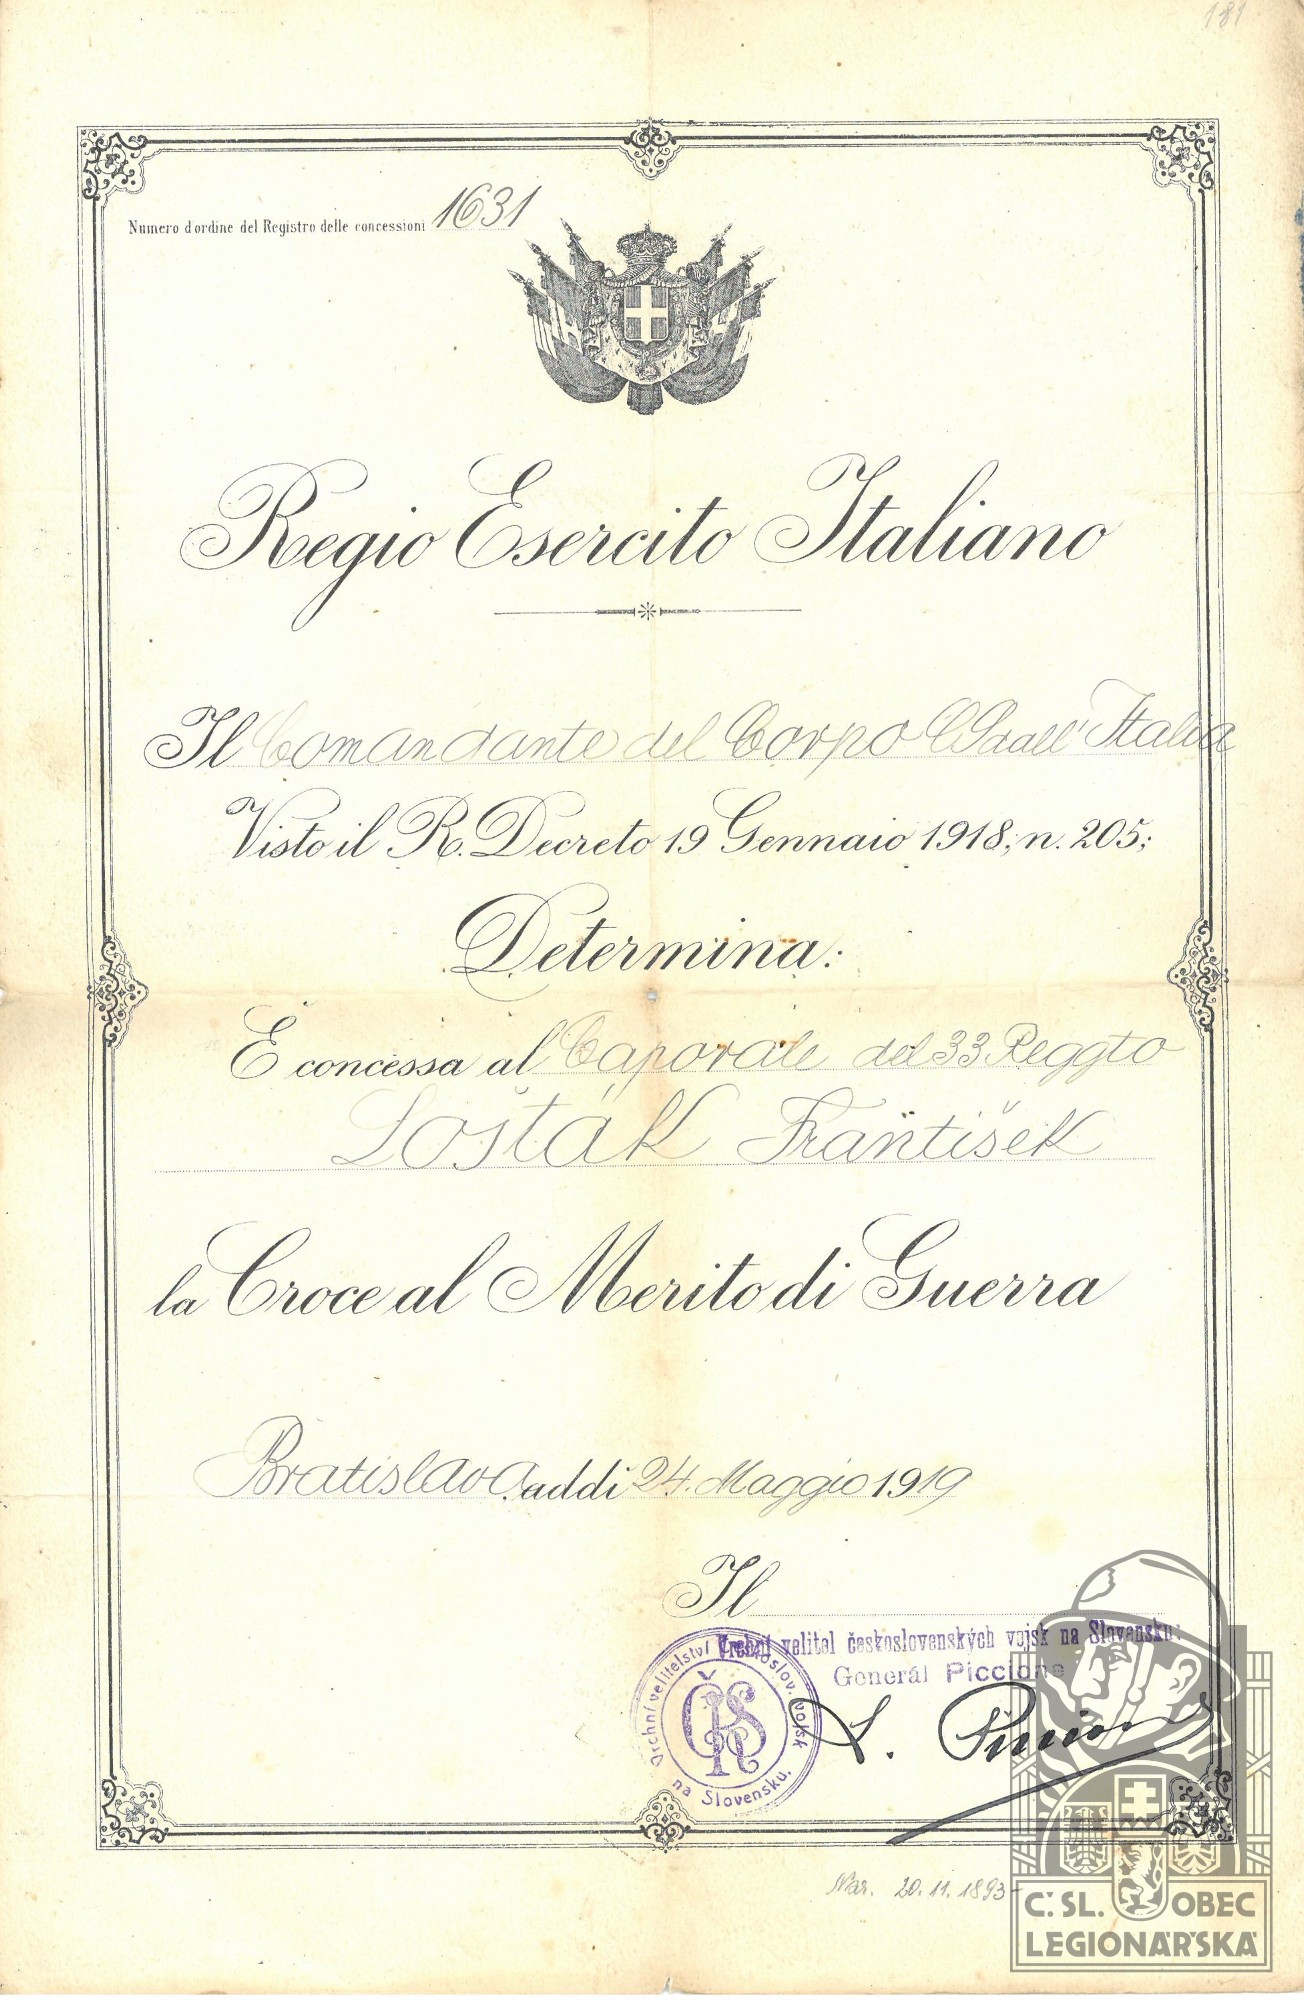 181
Numero d'ordine del Registro delle concessioni 1631
Regio Esercito Italiano
Il Comandante del Corpo CS dall' Italia
Visto il R. Decreto 19 Gennaio 1918, n. 205;
Determina:
È concessa al Caporale del 33 Reggto
Lošták František
la Croce al Merito di Guerra
Bratislava addì 24. Maggio 1919
Il
Vrchní velitel československých vojsk na Slovensku:
Generál Piccione
Vrchní velitelství českoslov. vojsk
na Slovensku.
ČSR
Nar. 20. 11. 1893
Č. SL. OBEC
LEGIONÁŘSKÁ